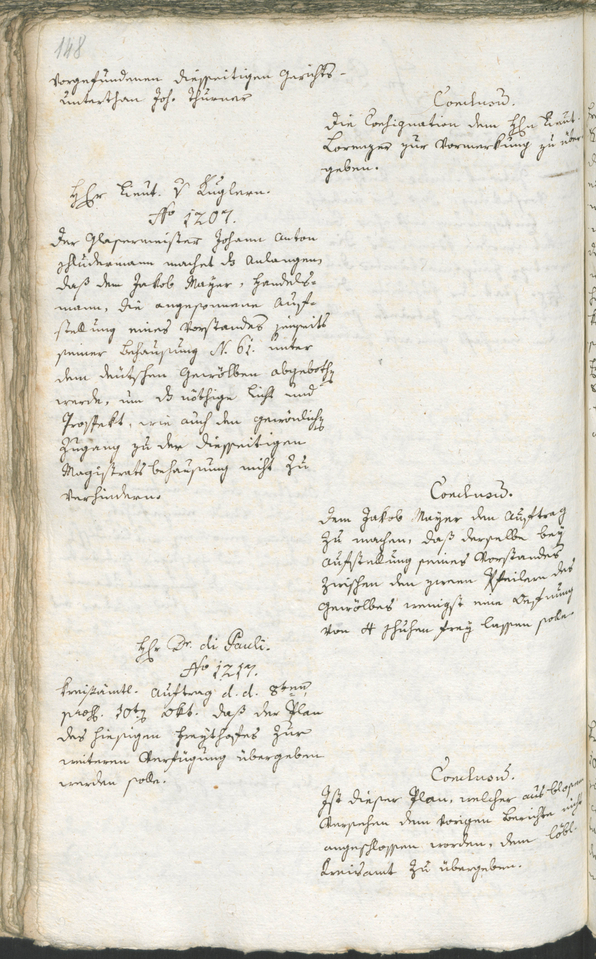 148
vorgefundenen diesseitigen Gerichts-
unterthan Joh. Thurner
Conclusũ.
Die Consignation dem Hhn Lieut.
Lorenzer zur Vormerkung zu über-
geben.
Hhr Lieut. v Kuglern.
No 1207.
Der Glasermeister Johann Anton
machet ds Anlangen,
daß dem Jakob Mayer, Handels-
mann, die angesonnene Auf-
stellung eines Vorstandes jenseits
seiner Behausung N. 61. unter
dem deutschen Gewölben abgebothen
werde, um ds nöthige Licht und
Prospekt, wie auch den gewönlichen
Zugang zu der diesseitigen
Magistratsbehausung nicht zu
verhindern.
Conclusũ.
Dem Jakob Mayer den Auftrag
zu machen, daß derselbe bey
Aufstellung seines Vorstandes
zwischen den zween Pfeilern des
Gewölbes wenigst eine Oeffnung
von 4 Schuhen frey lassen solle
Hhr Dr. di Pauli.
No 1217.
Kreisämtl. Auftrag d. d. 8ten,
präs. 10ten Okt. daß der Plan
des hiesigen Freythofes zur
weiteren Verfügung übergeben
werden solle.
Conclusũ.
Ist dieser Plan, welcher aus blossem
Versehen dem vorigen Berichte nicht
angeschlossen worden, dem löbl.
Kreisamt zu übergeben.